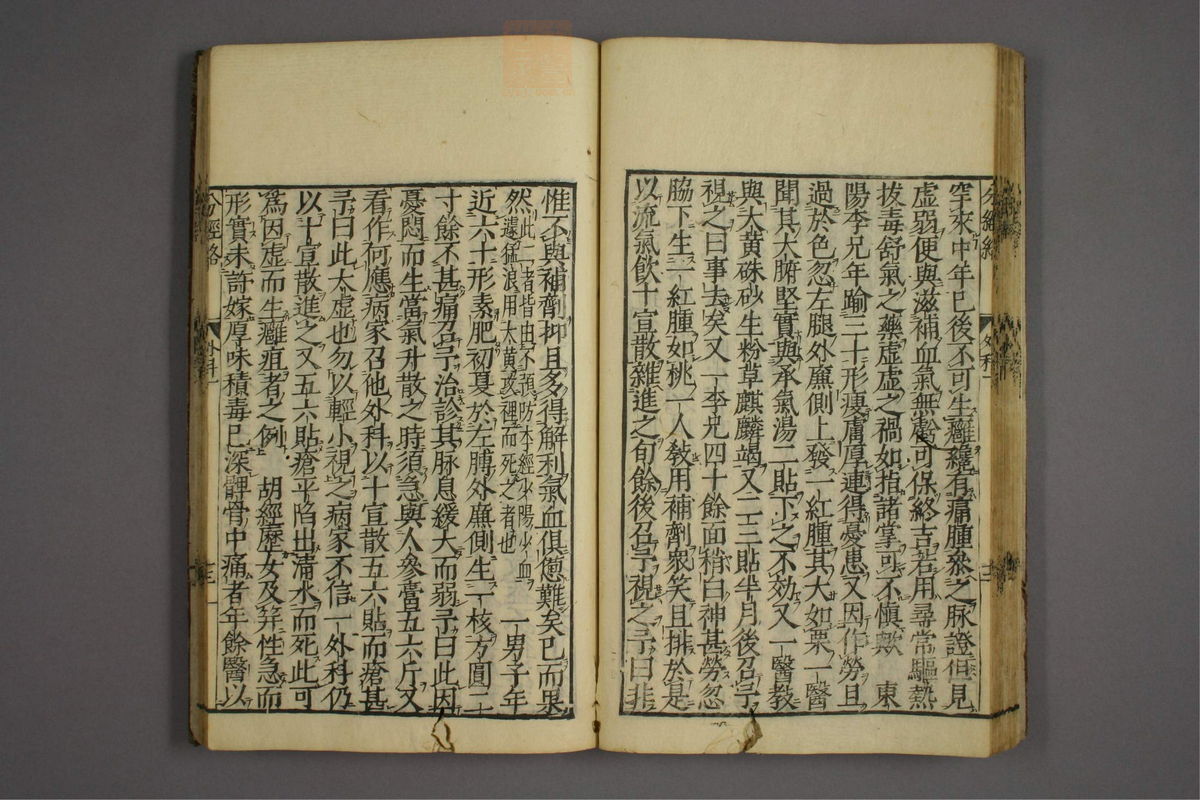 罕來中年已後不可生癰纔有痛腫參之脉證但見
虛弱便與滋補血氣無虧可保終吉若用尋常驅熱
拔毒舒氣之藥虛虛之禍如指諸掌可不愼歟　東
陽李兄年踰三十形瘦膚厚連得憂患又因作勞且
過於色忽左腿外廉側上發一紅腫其大如栗一醫
聞其大腑堅實與承氣湯二貼下之不効又一醫教
與大黃硃砂生粉草麒麟竭又二三貼半月後召予
視之曰事去矣又一李兄四十餘面稍白神甚勞忽
脇下生一紅腫如桃一人敎用補劑衆笑且排於是
以流氣飲十宣散雜進之旬餘後召予視之予曰非
分經絡　外科一　十二
惟不與補劑抑且多得解利氣血俱憊難矣已而果
然此二者皆由不預防本經少陽少血
遽猛浪用大黃攻裡而死之者也　一男子年
近六十形素肥初夏於左膊外廉側生一核方圓一
寸餘不甚痛召予治診其脉息緩大而弱予曰此因
憂悶而生當氣升散之時須急與人參膏五六斤又
看作何應病家召他外科以十宣散五六貼而瘡甚
予曰此大虛也勿以輕小視之病家不信一外科仍
以十宣散進之又五六貼瘡平陷出淸水而死此可
爲因虛而生癰疽者之例　胡經歷女及笄性急而
形實未許嫁厚味積毒已深髀骨中痛者年餘醫以
分經絡　外科一　十三